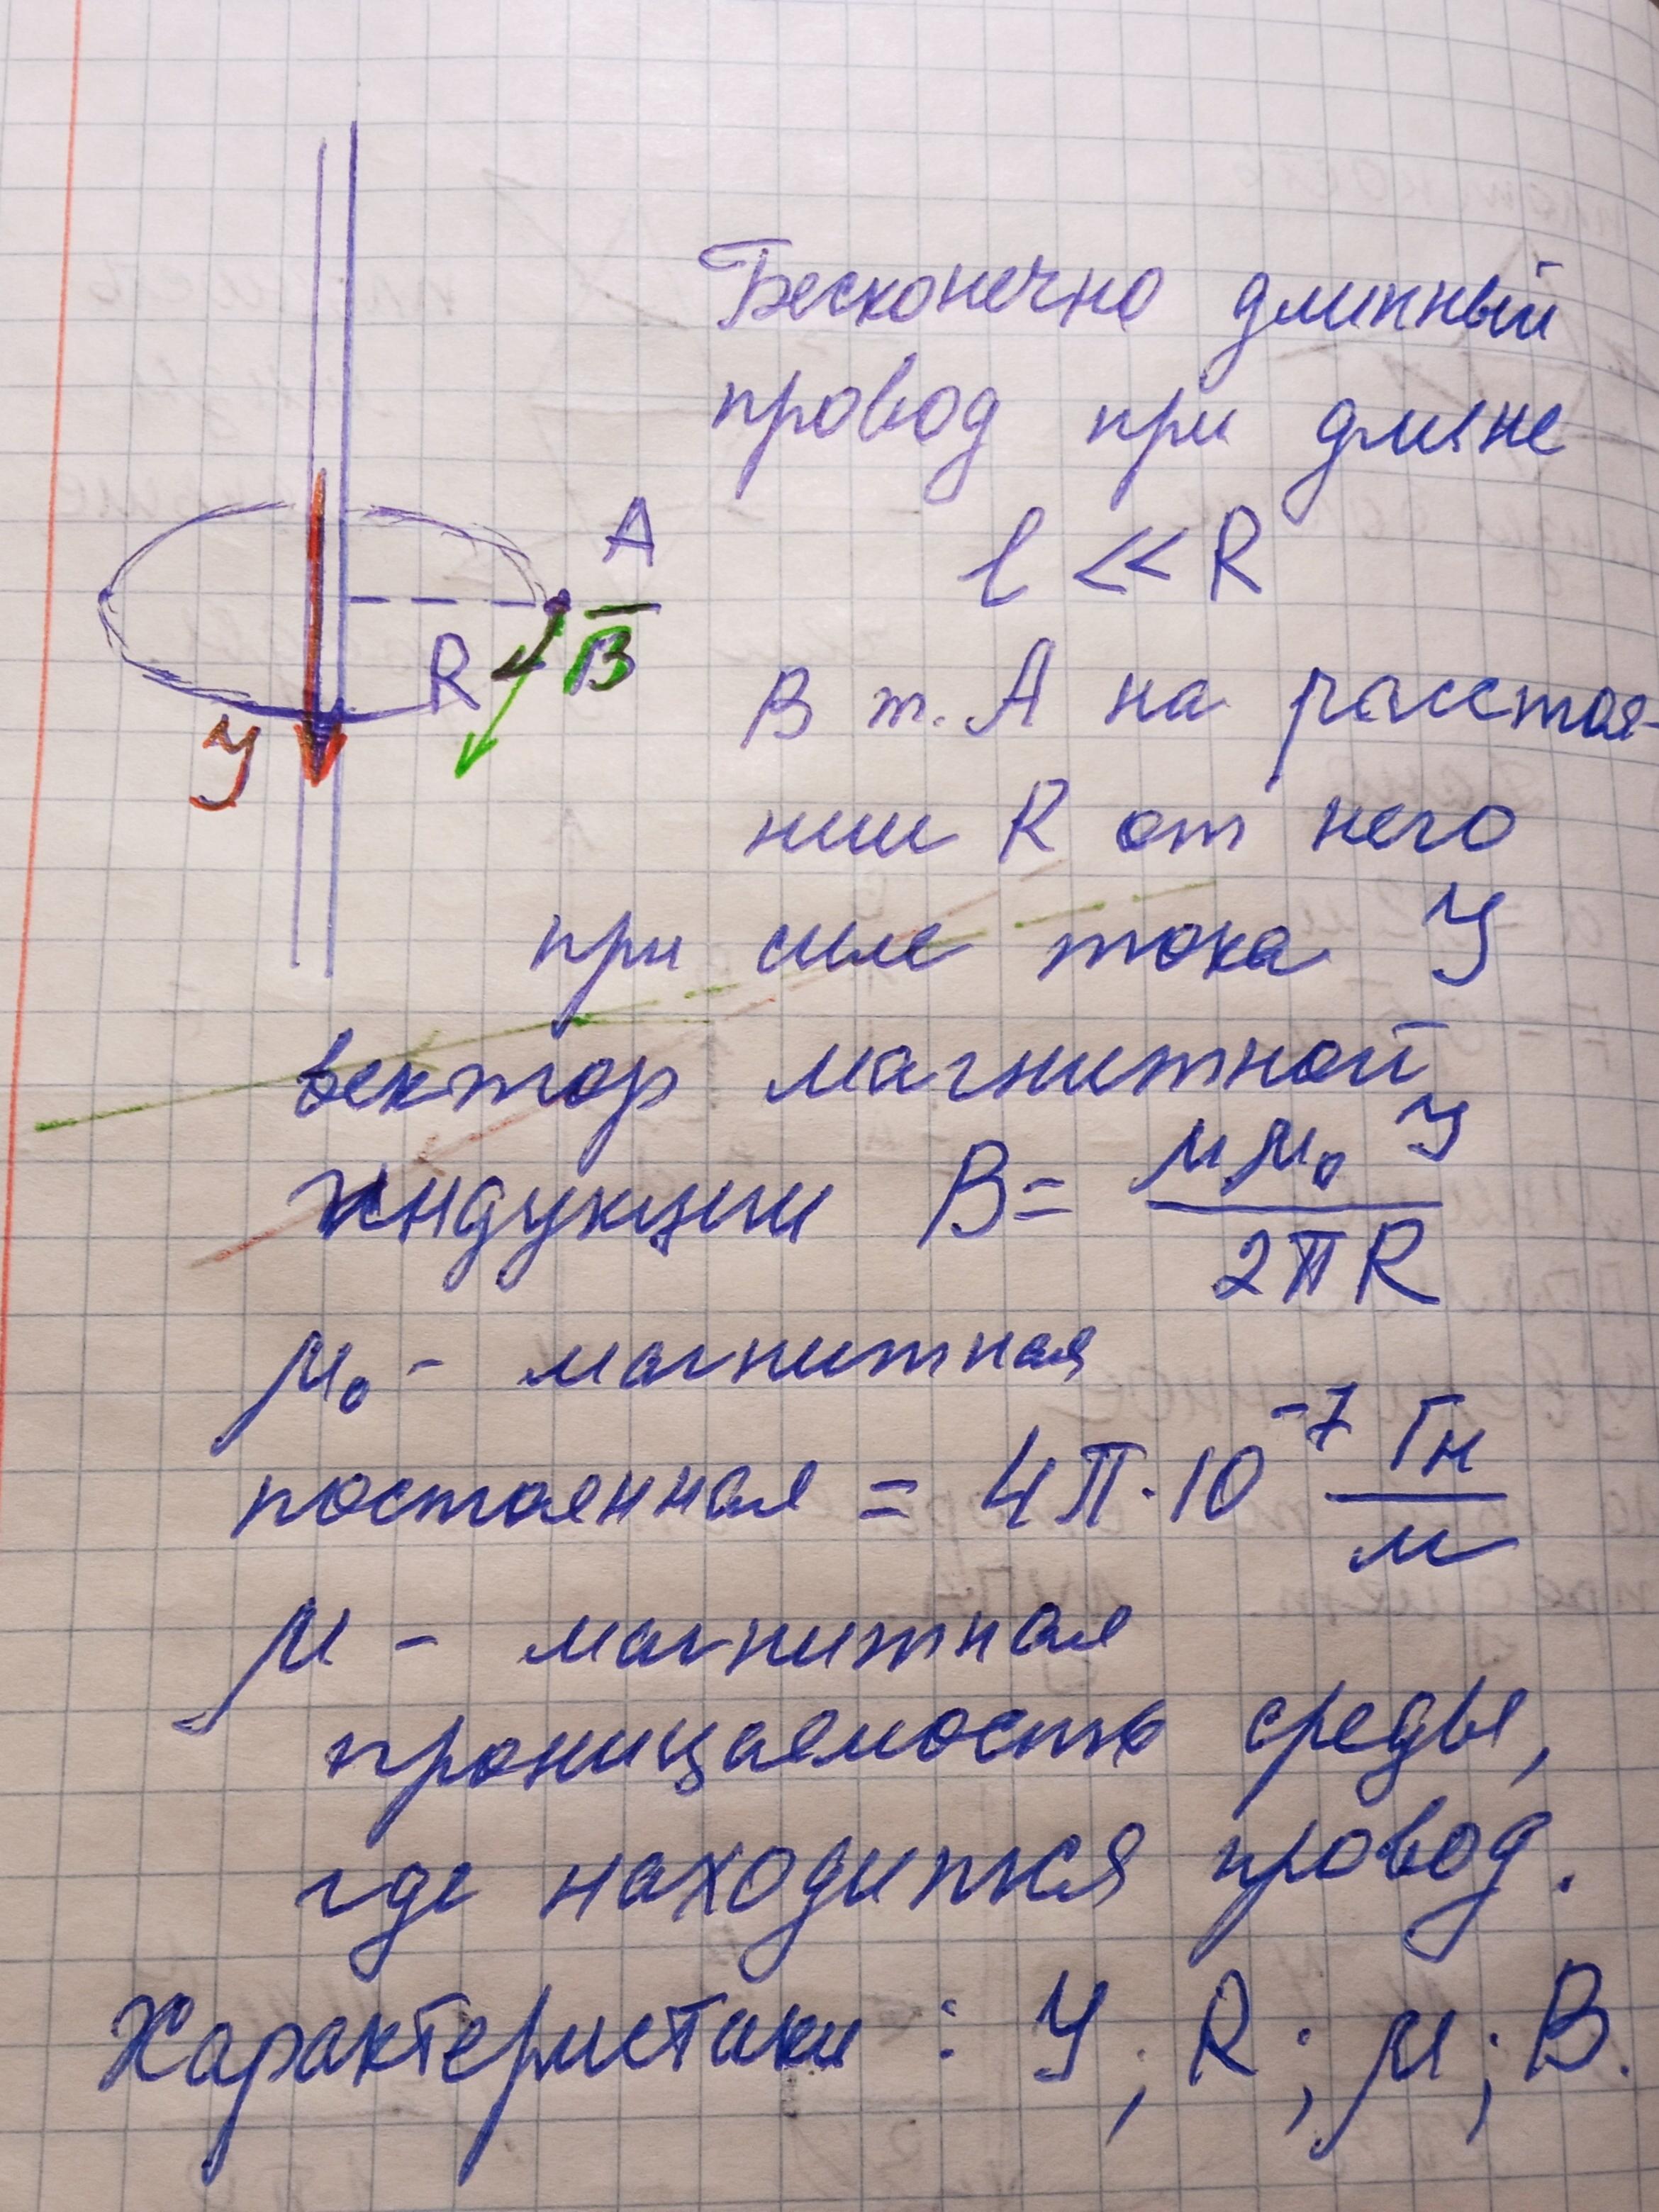 Бесконечно длинный
провод при длине
l << R
A
B̅
R
У
В т. А на расстоя-
нии R от него
при силе тока У
вектор магнитной
индукции B = μμ₀У / 2πR
μ₀ - магнитная
постоянная = 4π·10⁻⁷ Гн/м
μ - магнитная
проницаемость среды,
где находится провод.
Характеристики: У; R; μ; B.